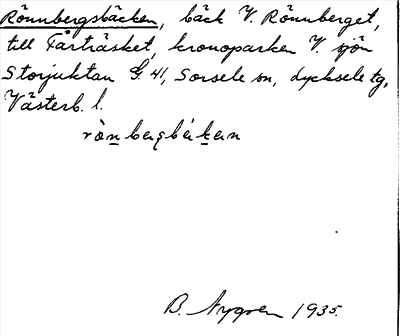 Rönnbergsbäcken, bäck V. Rönnberget,
till Fårträsket, kronoparken V. sjön
Storjuktan G. 41, Sorsele sn, Lycksele tg,
Västerb. l.
rönbergbäken
B. Nygren 1935.